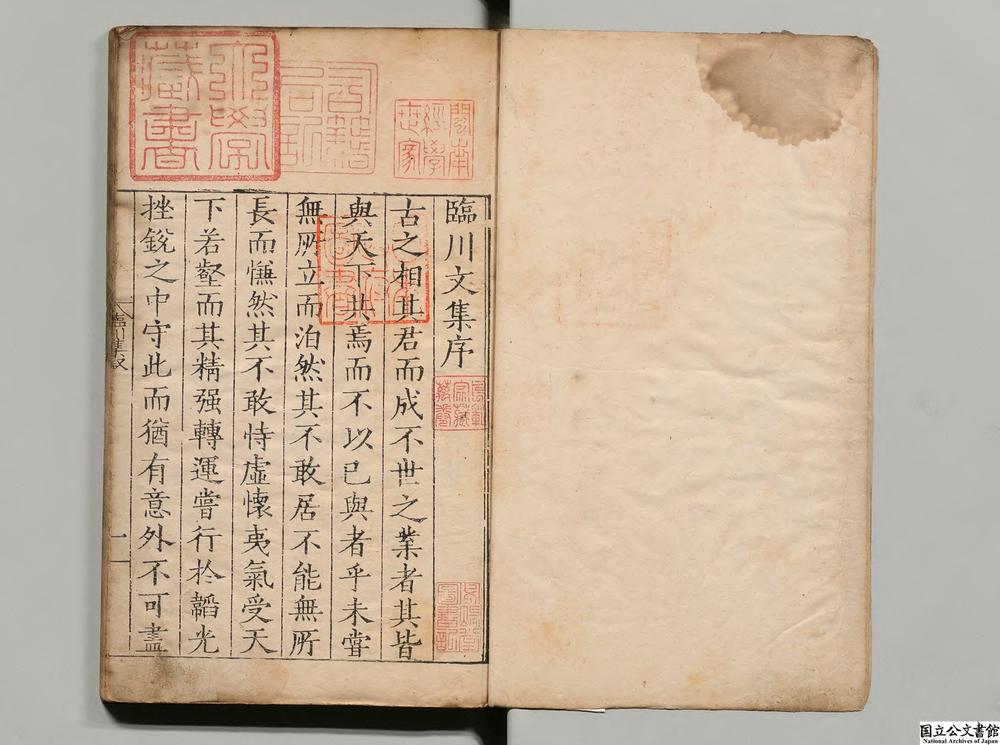 臨川文集序
古之相其君而成不世之業者其皆
與天下共焉而不以已與者乎未嘗
無所立而泊然其不敢居不能無所
長而憮然其不敢恃虛懷夷氣受天
下若壑而其精强轉運嘗行於韜光
挫銳之中守此而猶有意外不可盡
一
閩南
經學
世家
司籍
局記
藏書
国立公文書館
National Archives of Japan